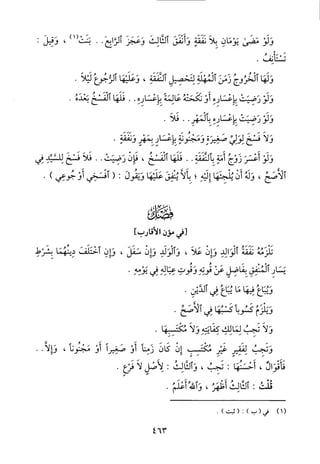 وَلَوْ مَضَىٰ يَوْمَانِ بِلَا نَفَقَةٍ وَأَنْفَقَ ٱلثَّالِثَ وَعَجَزَ ٱلرَّابِعَ.. بَنَتْ(١) ، وَقِيلَ :
تَسْتَأْنِفُ .
وَلَهَا ٱلْخُرُوجُ زَمَنَ ٱلْمُهْلَةِ لِتَحْصِيلِ ٱلنَّفَقَةِ ، وَعَلَيْهَا ٱلرُّجُوعُ لَيْلًا .
وَلَوْ رَضِيَتْ بِإِعْسَارِهِ أَوْ نَكَحَتْهُ عَالِمَةً بِإِعْسَارِهِ.. فَلَهَا ٱلْفَسْخُ بَعْدَهُ .
وَلَوْ رَضِيَتْ بِإِعْسَارِهِ بِٱلْمَهْرِ.. فَلَا .
وَلَا فَسْخَ لِوَلِيِّ صَغِيرَةٍ وَمَجْنُونَةٍ بِإِعْسَارٍ بِمَهْرٍ وَنَفَقَةٍ .
وَلَوْ أَعْسَرَ زَوْجُ أَمَةٍ بِٱلنَّفَقَةِ.. فَلَهَا ٱلْفَسْخُ ، فَإِنْ رَضِيَتْ.. فَلَا فَسْخَ لِلسَّيِّدِ فِي
ٱلْأَصَحِّ ، وَلَهُ أَنْ يُلْجِئَهَا إِلَيْهِ ؛ بِأَلَّا يُنْفِقَ عَلَيْهَا وَيَقُولَ : ( ٱفْسَخِي أَوْ جُوعِي ) .
فَصْلٌ
[في مؤن الأقارب]
تَلْزَمُهُ نَفَقَةُ ٱلْوَالِدِ وَإِنْ عَلَا ، وَٱلْوَلَدِ وَإِنْ سَفَلَ ، وَإِنِ ٱخْتَلَفَ دِينُهُمَا بِشَرْطِ
يَسَارِ ٱلْمُنْفِقِ بِفَاضِلٍ عَنْ قُوتِهِ وَقُوتِ عِيَالِهِ فِي يَوْمِهِ .
وَيُبَاعُ فِيهَا مَا يُبَاعُ فِي ٱلدَّيْنِ .
وَيَلْزَمُ كَسُوبًا كَسْبُهَا فِي ٱلْأَصَحِّ .
وَلَا تَجِبُ لِمَالِكٍ كِفَايَتَهُ وَلَا مُكْتَسِبِهَا .
وَتَجِبُ لِفَقِيرٍ غَيْرِ مُكْتَسِبٍ إِنْ كَانَ زَمِنًا أَوْ صَغِيرًا أَوْ مَجْنُونًا ، وَإِلَّا..
فَأَقْوَالٌ ، أَحْسَنُهَا : تَجِبُ ، وَٱلثَّالِثُ : لِأَصْلٍ لَا فَرْعٍ .
قُلْتُ : ٱلثَّالِثُ أَظْهَرُ ، وَٱللهُ أَعْلَمُ .
(١) في (ب) : (ثبت) .
٤٦٣